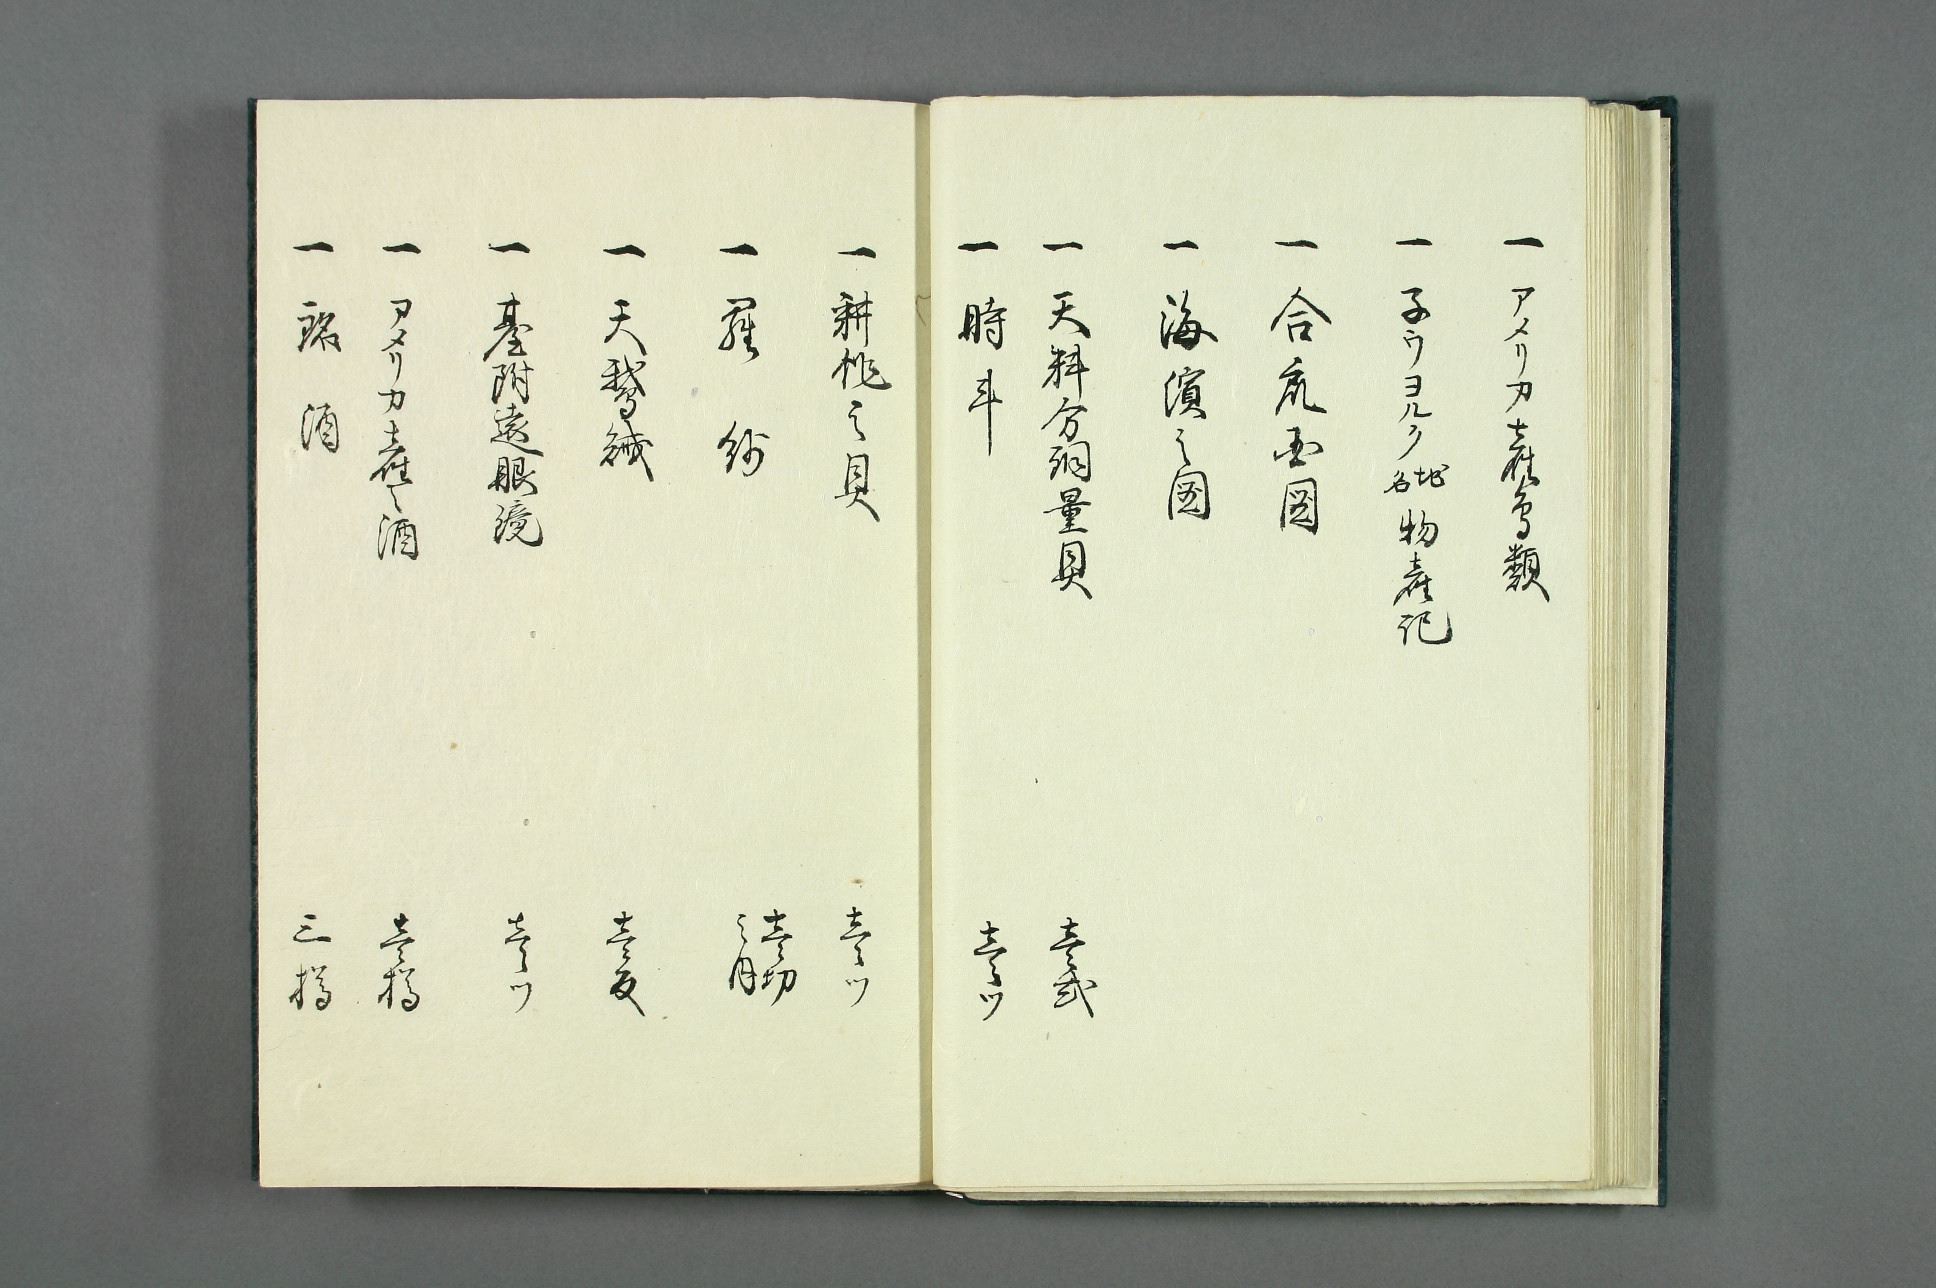 一 アメリカ産鳥類
一 子ウヨルク地名物産記
一 合衆国圖
一 海濱之圖
一 天秤分銅量具 壱式
一 時斗 壱ツ
一 耕作之具 壱ツ
一 羅紗 壱切之内
一 天鵞絨 壱反
一 臺附遠眼鏡 壱ツ
一 アメリカ産之酒 壱樽
一 銘酒 三樽